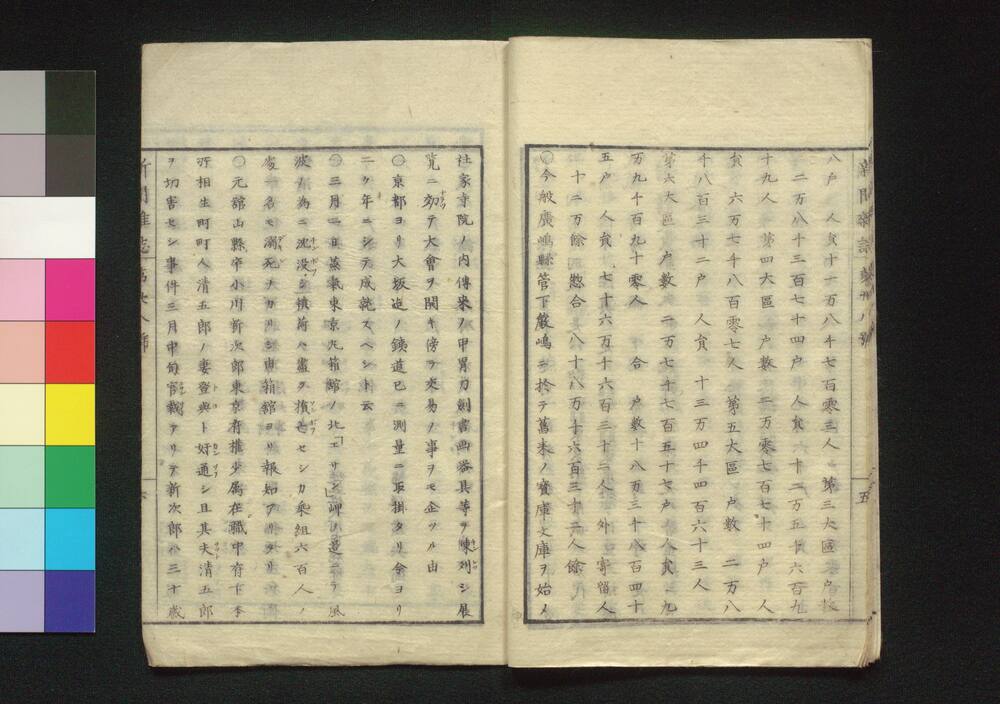 八戸 人食十一万八千七百零三人 第三大區 戸数
二万八十三百七十四戸 人食 十二万五十六百九
十九人 第四大區 戸数 二万零七百七十四戸 人
食 六万七千八百零七人 第五大區 戸数 二万八
千八百三十二戸 人食 十三万四千四百六十三人
第六大區 戸数 二万七千七百五十七戸 人食 九
万九千百九十零人 合 戸数十八万三十八百四十
五戸 人食 七十六万千六百三十二人 外 寄留人
十二万餘 惣合 八十八万十六百三十二人餘
〇今般廣嶋縣管下嚴嶋ニ於テ舊来ノ寳庫文庫ヲ始メ
新聞雜誌 第卅八號
五
社家寺院ノ内傳来ノ甲冑刀劍書画器具等ヲ陳列シ展
覧ニ効テ大會ヲ開キ傍ラ交易ノ事ヲモ企ツル由
〇京都ヨリ大坂迠ノ鉄道已ニ測量ニ取掛タリ今ヨリ
二ケ年ニシテ成就スヘシト云
〇三月二日蒸氣東京丸箱館ノ北「エリモ」岬ノ邉ニテ風
波ノ為ニ沈没シ積荷ハ盡ク損セシカ乗組六百人ノ
處一名モ溺死ナカリシ由箱舘ヨリ報知アリ
〇元舘山縣卒小川新次郎東京府權少属在職中府下本
所相生町町人清五郎ノ妻登與ト奸通シ且其夫清五郎
ヲ切害セシ事件三月中旬官裁アリテ新次郎ハ三十歳
新聞雜誌 第卅八號
六